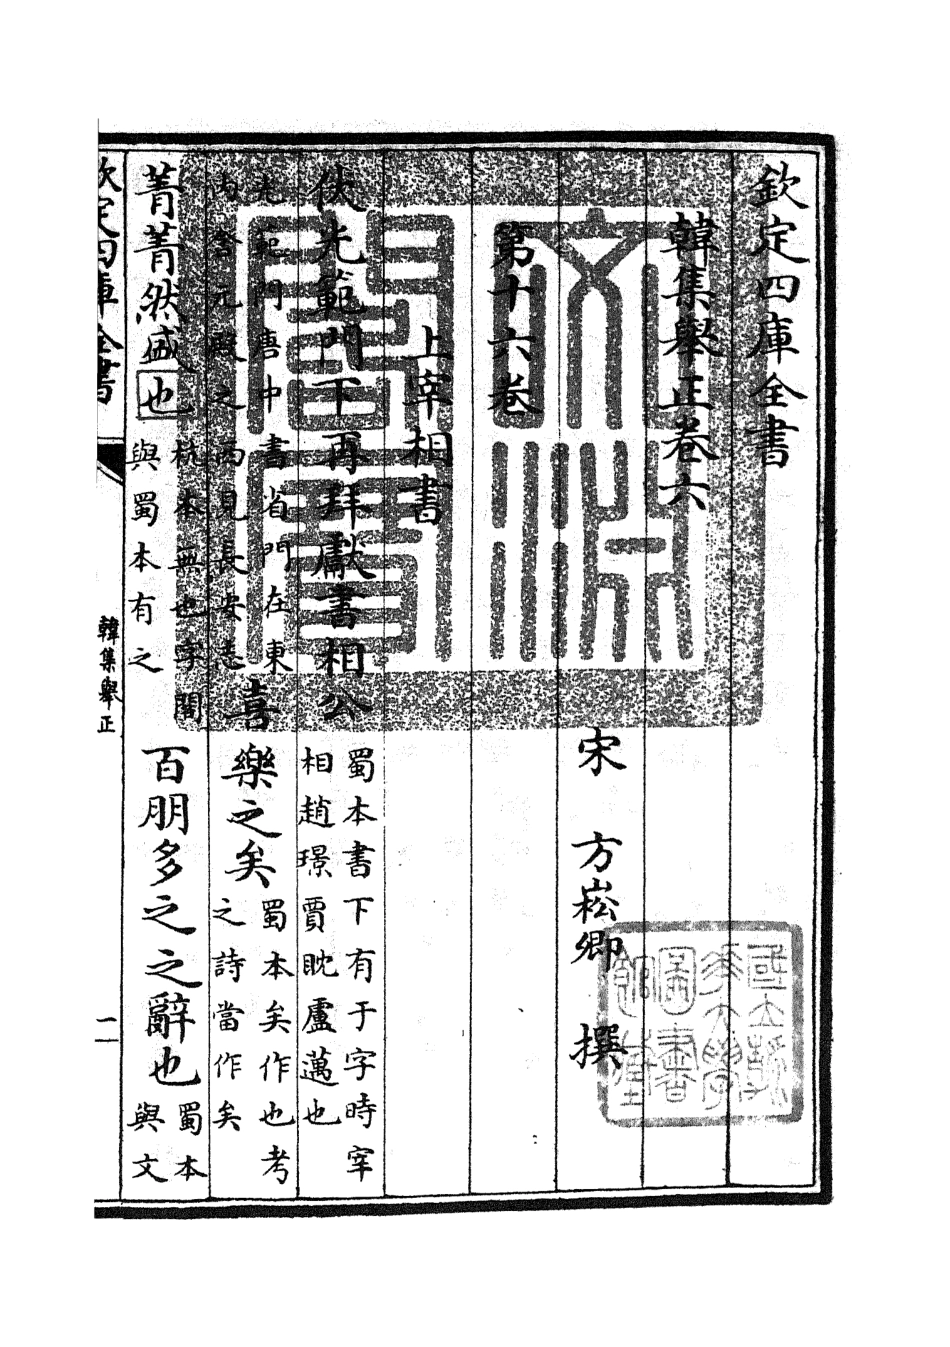 欽定四庫全書
韓集舉正卷六
宋 方崧卿 撰
第十六卷
上宰相書
伏光範門下再拜獻書相公 蜀本書下有于字時宰
相趙璟賈眈盧邁也
光範門唐中書省門在東
内含元殿之西見長安志 喜樂之矣 蜀本矣作也考
之詩當作矣
菁菁然盛也 杭本無也字閣
與蜀本有之 百朋多之之辭也 蜀本
與文
欽定四庫全書
韓集舉正
一
文淵閣寶
國立北平大學圖書館藏